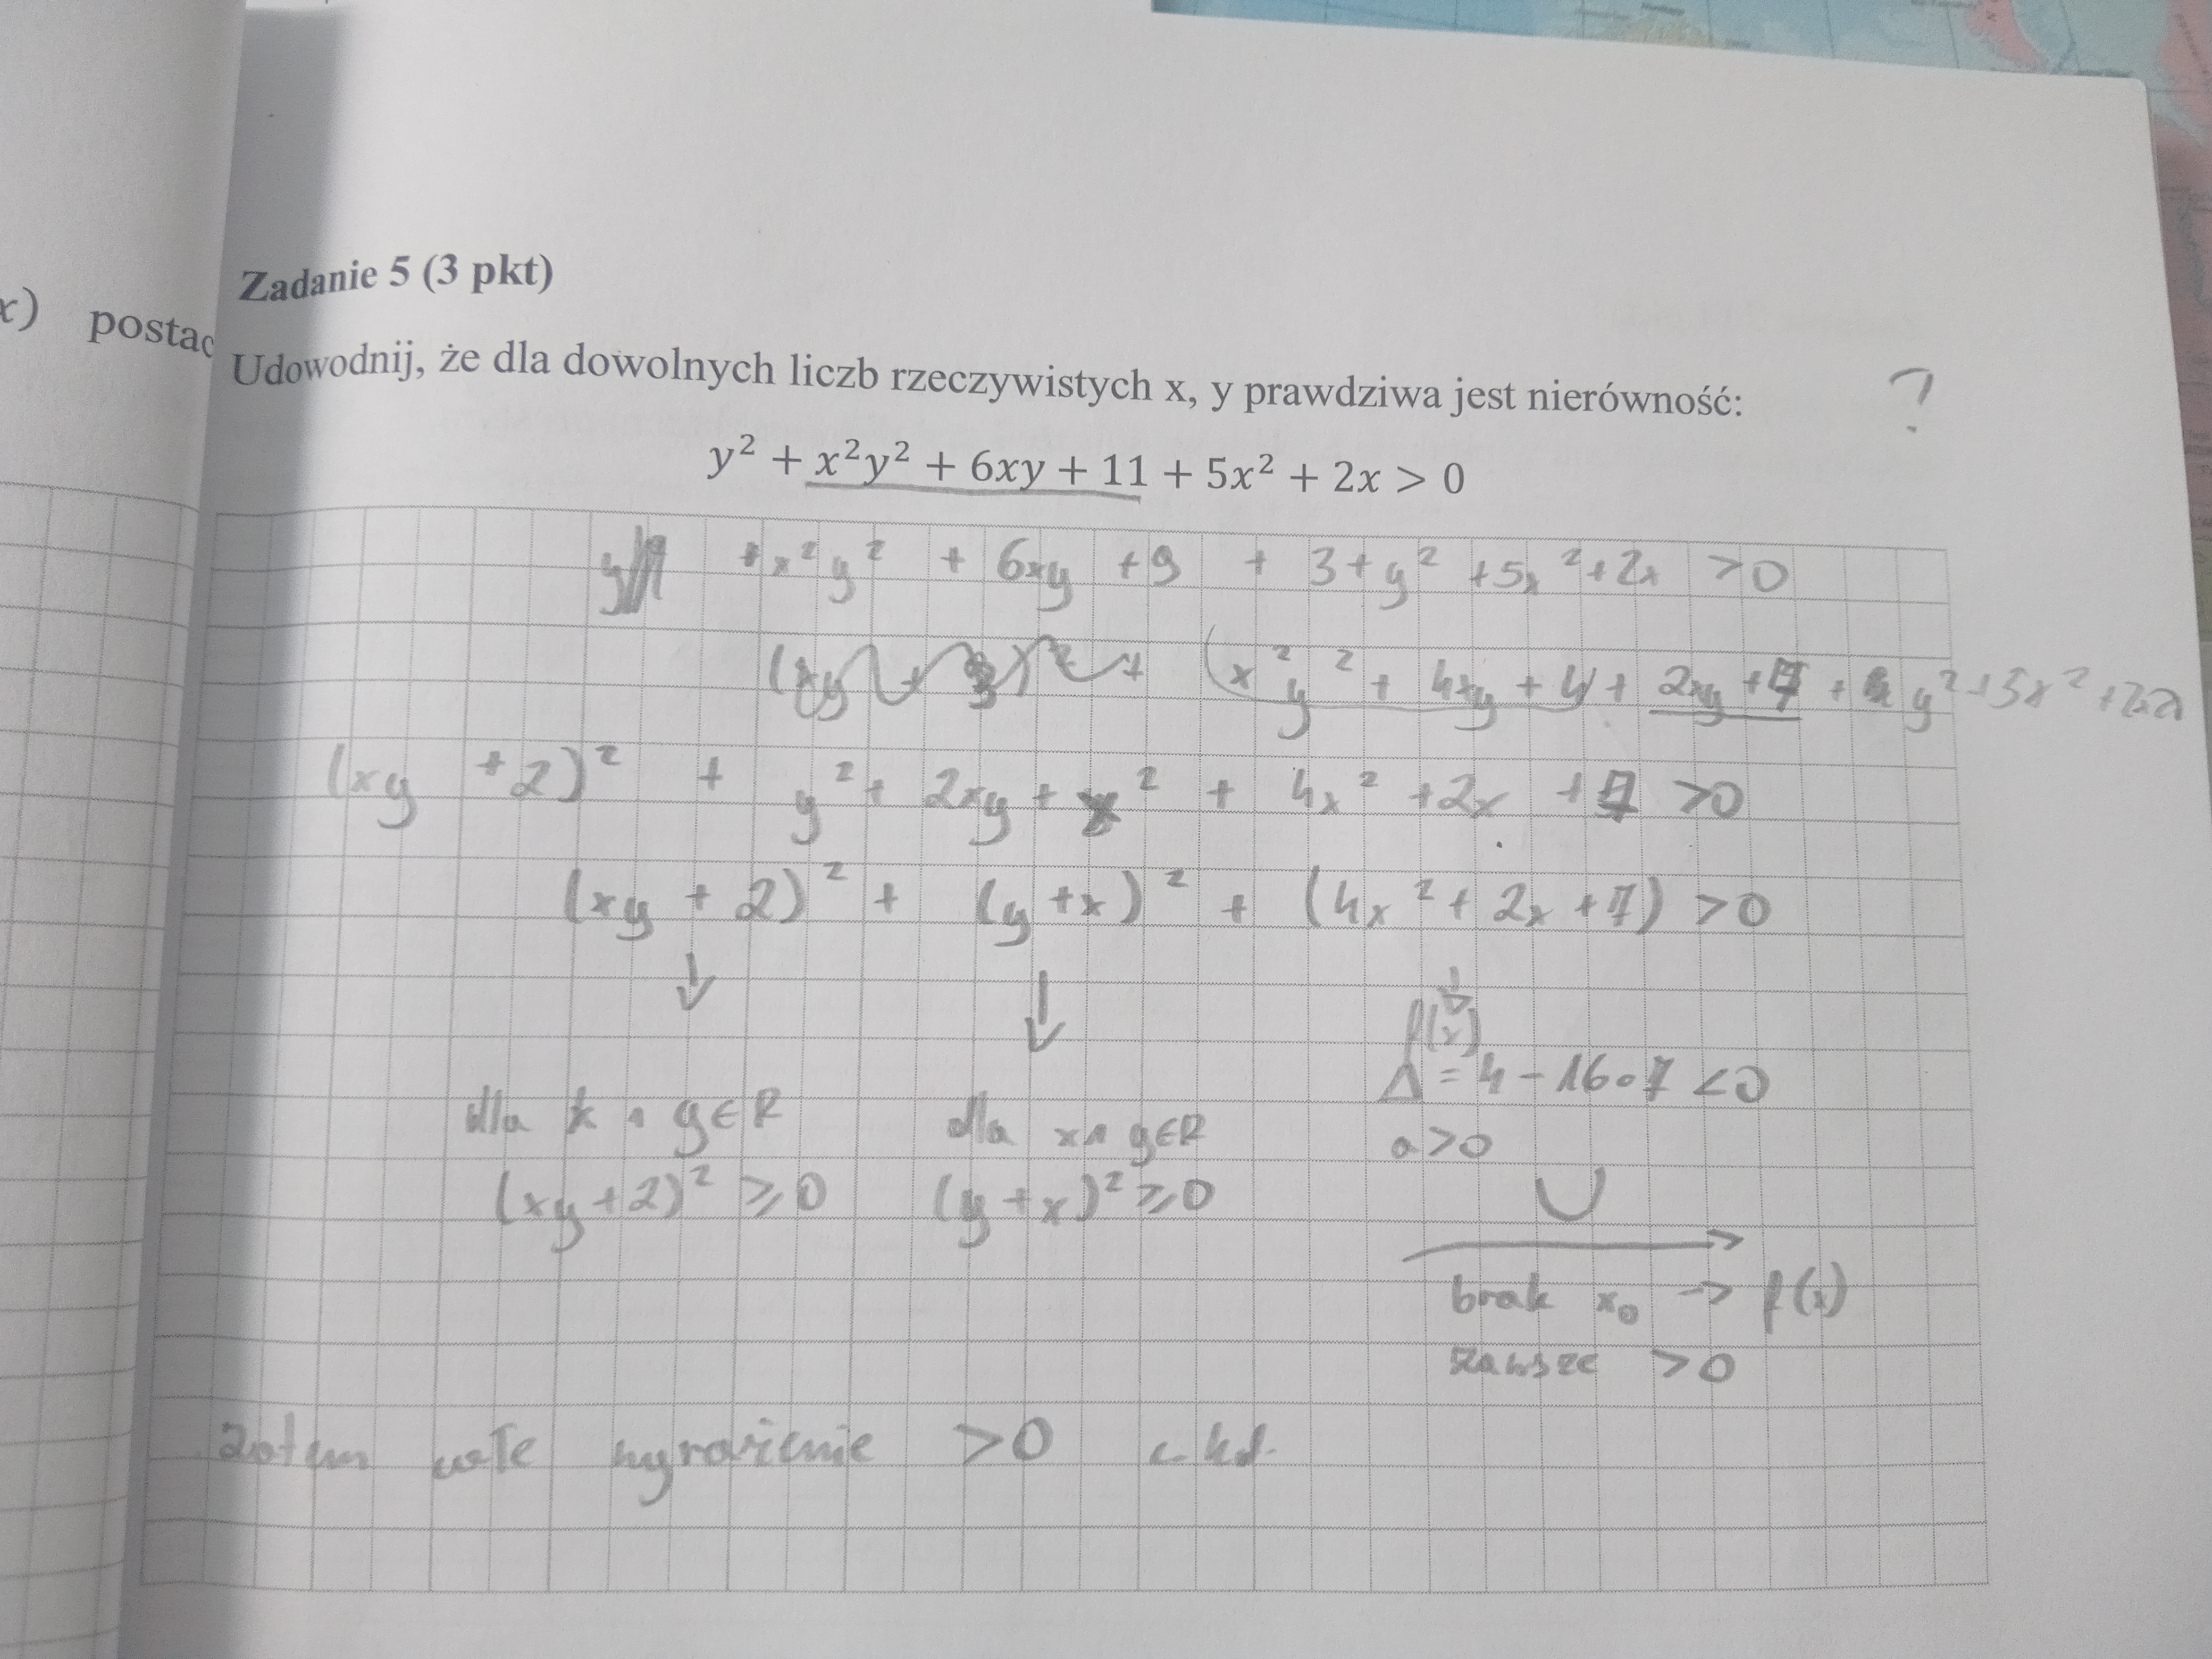 x) postac
Zadanie 5 (3 pkt)
Udowodnij, że dla dowolnych liczb rzeczywistych x, y prawdziwa jest nierówność:
?
y² + x²y² + 6xy + 11 + 5x² + 2x > 0
+x²y² + 6xy + 9 + 3 + y² + 5x² + 2x > 0
(x²y² + 4xy + 4) + 2xy + 7 + y² + 5x² + 2x
(xy + 2)² + y² + 2xy + x² + 4x² + 2x + 7 > 0
(xy + 2)² + (y + x)² + (4x² + 2x + 7) > 0
↓ ↓ ↓
f(x)
Δ = 4 - 16·7 < 0
dla x ∧ y∈R dla x ∧ y∈R
a > 0
(xy + 2)² ⩾ 0 (y + x)² ⩾ 0
brak x₀ → f(x)
zawsze > 0
zatem całe wyrażenie > 0 c.kd.